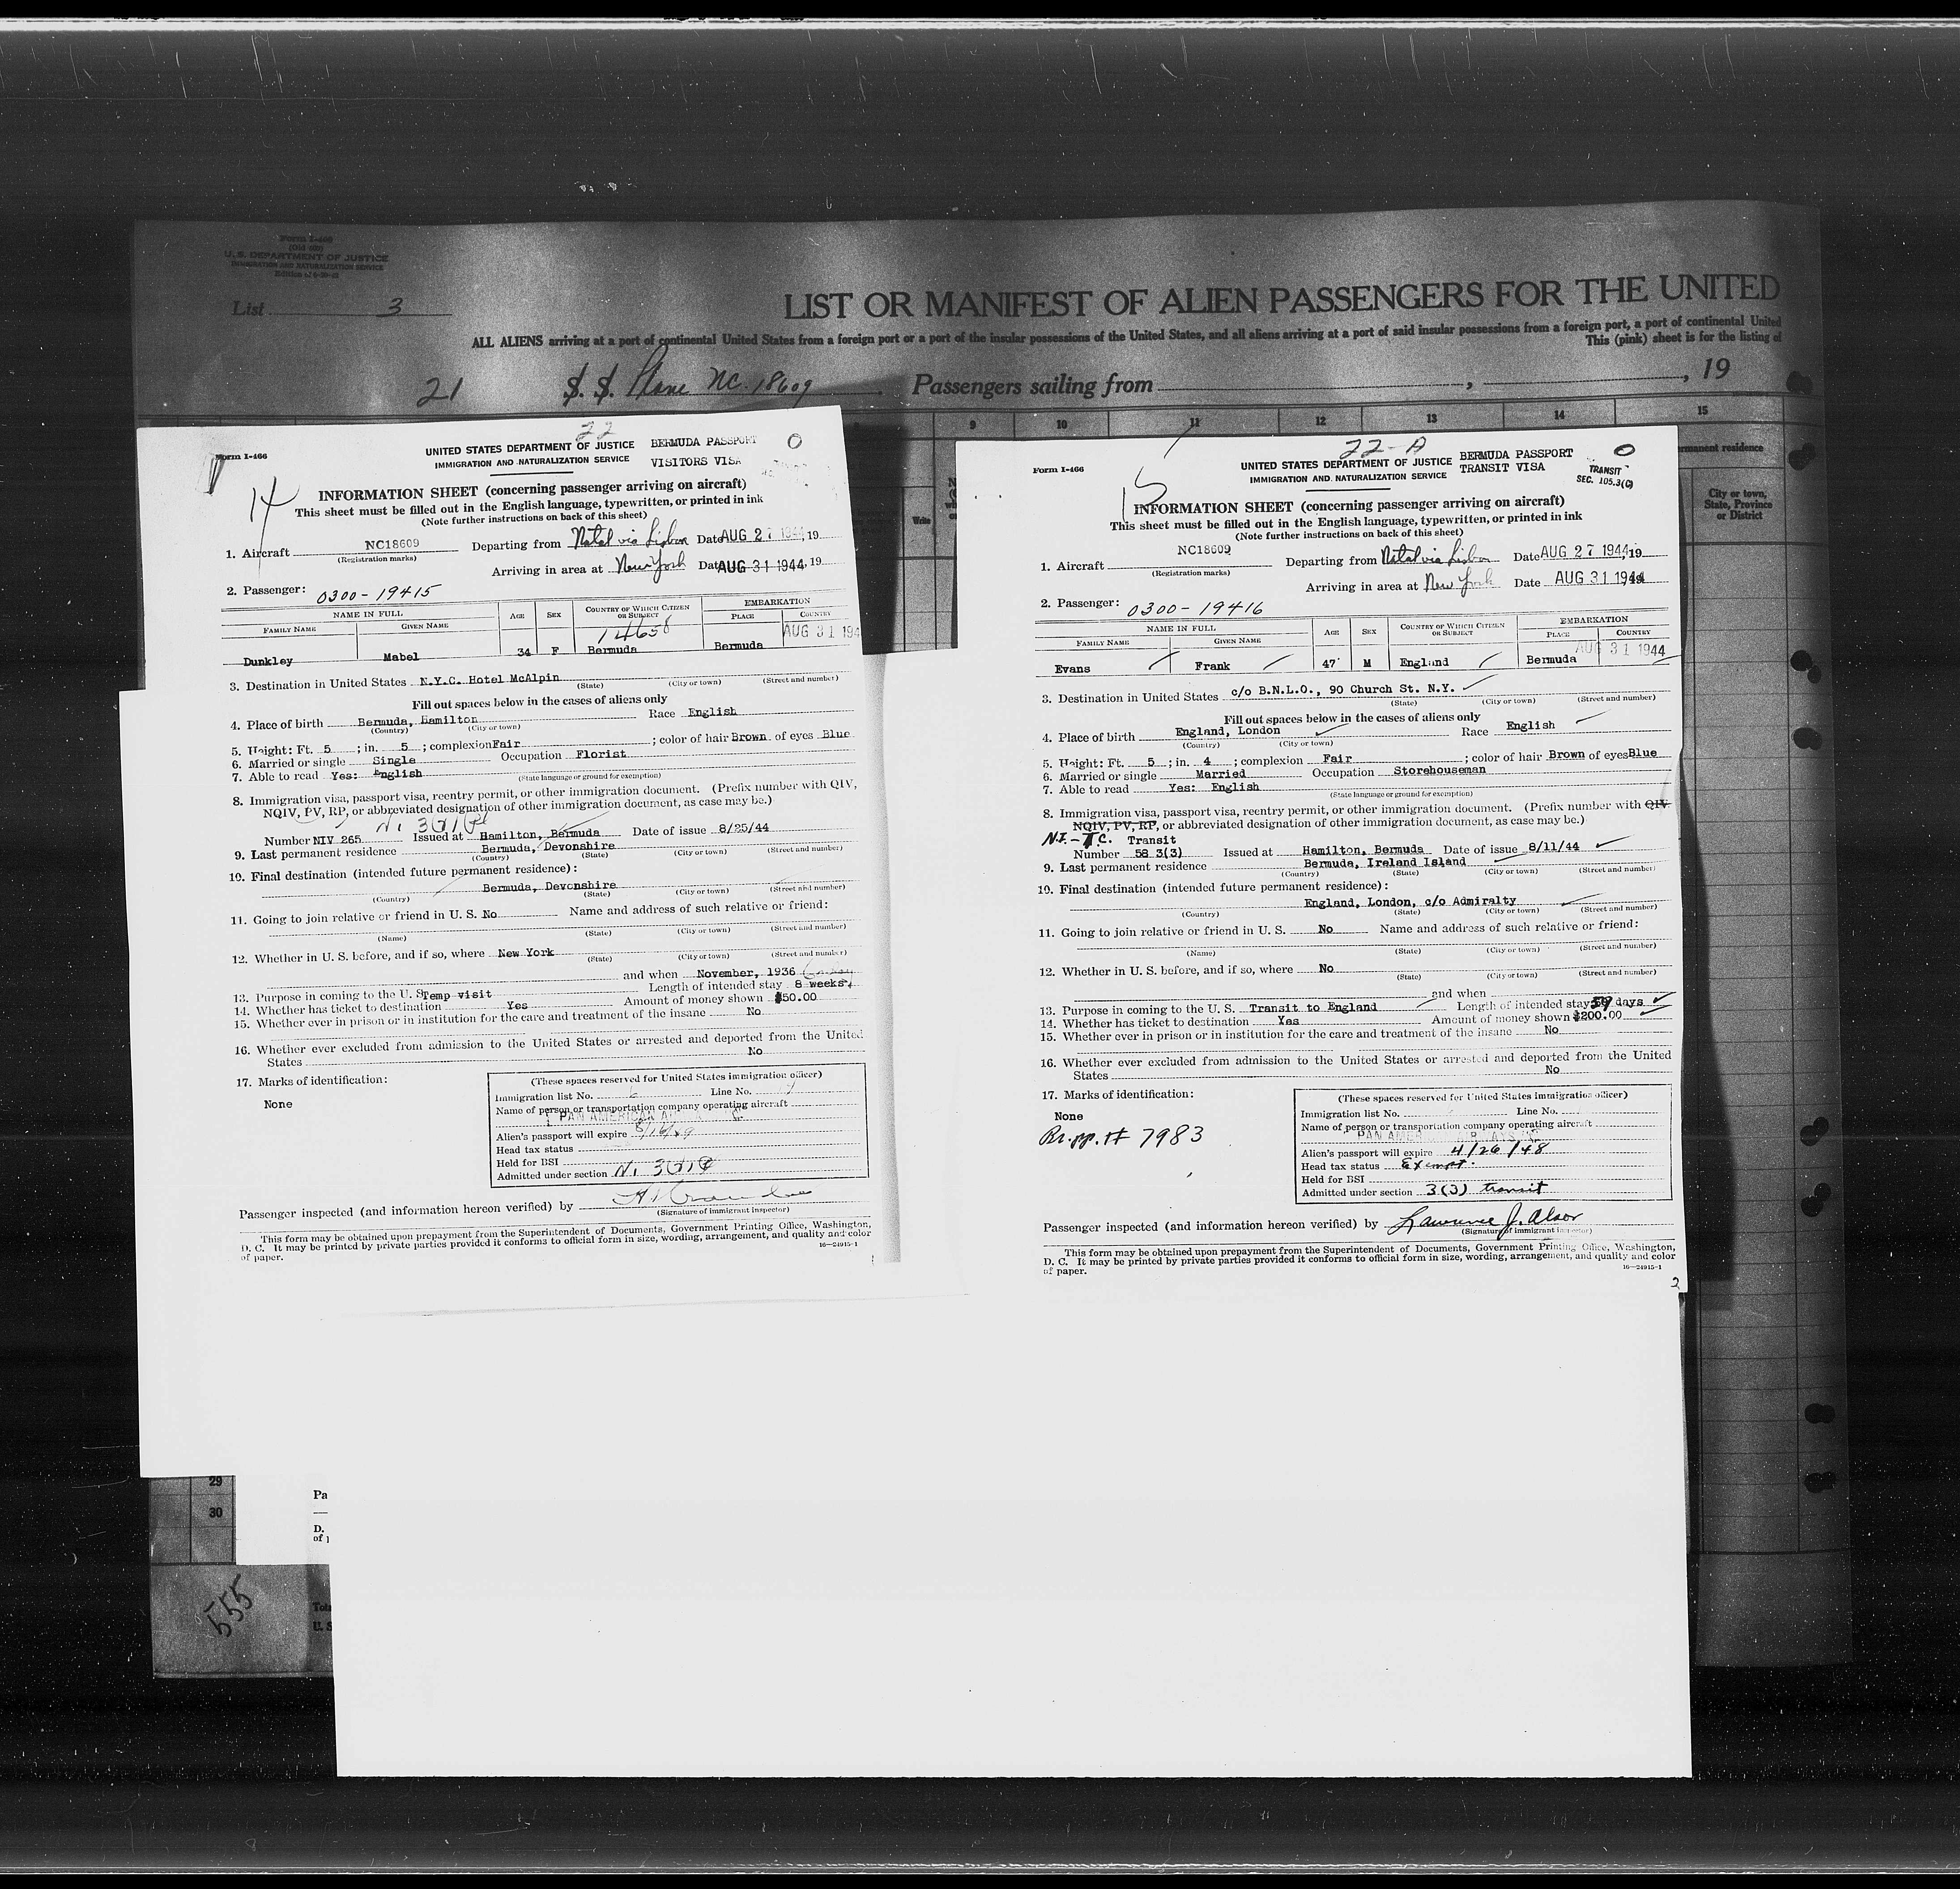 Form I-466
(Old 466)
U. S. DEPARTMENT OF JUSTICE
IMMIGRATION AND NATURALIZATION SERVICE
List 3
LIST OR MANIFEST OF ALIEN PASSENGERS FOR THE UNITED
ALL ALIENS arriving at a port of continental United States from a foreign port or a port of the insular possessions of the United States, and all aliens arriving at a port of said insular possessions from a foreign port, a port of continental United
This (pink) sheet is for the listing of
21 S. S. Plane NC. 18609 Passengers sailing from , , 19
9 10 11 12 13 14 15
permanent residence
City or town,
State, Province
or District
Write
22
Form I-466
UNITED STATES DEPARTMENT OF JUSTICE
IMMIGRATION AND NATURALIZATION SERVICE
BERMUDA PASSPORT
VISITORS VISA
14
INFORMATION SHEET (concerning passenger arriving on aircraft)
This sheet must be filled out in the English language, typewritten, or printed in ink
(Note further instructions on back of this sheet)
1. Aircraft NC18609 Departing from Natal via Lisbon Date AUG 27 1944, 19
(Registration marks)
Arriving in area at New York Date AUG 31 1944, 19
2. Passenger: 0300-19415
NAME IN FULL AGE SEX COUNTRY OF WHICH CITIZEN OR SUBJECT EMBARKATION
FAMILY NAME GIVEN NAME PLACE COUNTRY
14658 AUG 31 194
Dunkley Mabel 34 F Bermuda Bermuda
3. Destination in United States N.Y.C. Hotel McAlpin
(State) (City or town) (Street and number)
Fill out spaces below in the cases of aliens only
4. Place of birth Bermuda, Hamilton Race English
(Country) (City or town)
5. Height: Ft. 5 ; in. 5 ; complexion Fair ; color of hair Brown of eyes Blue
6. Married or single Single Occupation Florist
7. Able to read Yes: English
(State language or ground for exemption)
8. Immigration visa, passport visa, reentry permit, or other immigration document. (Prefix number with QIV,
NQIV, PV, RP, or abbreviated designation of other immigration document, as case may be.)
Number NIV 265 Issued at Hamilton, Bermuda Date of issue 8/25/44
9. Last permanent residence Bermuda, Devonshire
(Country) (State) (City or town) (Street and number)
10. Final destination (intended future permanent residence):
Bermuda, Devonshire
(Country) (State) (City or town) (Street and number)
11. Going to join relative or friend in U. S. No Name and address of such relative or friend:
(Name) (State) (City or town) (Street and number)
12. Whether in U. S. before, and if so, where New York
(State) (City or town) (Street and number)
and when November, 1936
13. Purpose in coming to the U. S. Temp visit Length of intended stay 8 weeks
14. Whether has ticket to destination Yes Amount of money shown $50.00
15. Whether ever in prison or in institution for the care and treatment of the insane No
16. Whether ever excluded from admission to the United States or arrested and deported from the United
States No
17. Marks of identification:
None
(These spaces reserved for United States immigration officer)
Immigration list No. Line No.
Name of person or transportation company operating aircraft
PAN AMERICAN
Alien's passport will expire
Head tax status
Held for BSI
Admitted under section
Passenger inspected (and information hereon verified) by
(Signature of immigrant inspector)
This form may be obtained upon prepayment from the Superintendent of Documents, Government Printing Office, Washington,
D. C. It may be printed by private parties provided it conforms to official form in size, wording, arrangement, and quality and color
of paper.
16—24915-1
22-A
Form I-466
UNITED STATES DEPARTMENT OF JUSTICE
IMMIGRATION AND NATURALIZATION SERVICE
BERMUDA PASSPORT
TRANSIT VISA
TRANSIT
SEC. 105.3(C)
15
INFORMATION SHEET (concerning passenger arriving on aircraft)
This sheet must be filled out in the English language, typewritten, or printed in ink
(Note further instructions on back of this sheet)
1. Aircraft NC18609 Departing from Natal via Lisbon Date AUG 27 1944, 19
(Registration marks)
Arriving in area at New York Date AUG 31 1944
2. Passenger: 0300-19416
NAME IN FULL AGE SEX COUNTRY OF WHICH CITIZEN OR SUBJECT EMBARKATION
FAMILY NAME GIVEN NAME PLACE COUNTRY
AUG 31 1944
Evans Frank 47 M England Bermuda
3. Destination in United States c/o B.N.L.O., 90 Church St. N.Y.
(State) (City or town) (Street and number)
Fill out spaces below in the cases of aliens only
4. Place of birth England, London Race English
(Country) (City or town)
5. Height: Ft. 5 ; in. 4 ; complexion Fair ; color of hair Brown of eyes Blue
6. Married or single Married Occupation Storehouseman
7. Able to read Yes: English
(State language or ground for exemption)
8. Immigration visa, passport visa, reentry permit, or other immigration document. (Prefix number with QIV
NQIV, PV, RP, or abbreviated designation of other immigration document, as case may be.)
N.I. - T.C. Transit
Number 58 3(3) Issued at Hamilton, Bermuda Date of issue 8/11/44
9. Last permanent residence Bermuda, Ireland Island
(Country) (State) (City or town) (Street and number)
10. Final destination (intended future permanent residence):
England, London, c/o Admiralty
(Country) (State) (City or town) (Street and number)
11. Going to join relative or friend in U. S. No Name and address of such relative or friend:
(Name) (State) (City or town) (Street and number)
12. Whether in U. S. before, and if so, where No
(State) (City or town) (Street and number)
and when
13. Purpose in coming to the U. S. Transit to England Length of intended stay 59 days
14. Whether has ticket to destination Yes Amount of money shown $200.00
15. Whether ever in prison or in institution for the care and treatment of the insane No
16. Whether ever excluded from admission to the United States or arrested and deported from the United
States No
17. Marks of identification:
None
Br. pp. # 7983
(These spaces reserved for United States immigration officer)
Immigration list No. Line No.
Name of person or transportation company operating aircraft
PAN AMERICAN AIRWAYS INC
Alien's passport will expire 4/26/48
Head tax status Exempt.
Held for BSI
Admitted under section 3(3) transit
Passenger inspected (and information hereon verified) by Lawrence J. Alsor
(Signature of immigrant inspector)
This form may be obtained upon prepayment from the Superintendent of Documents, Government Printing Office, Washington,
D. C. It may be printed by private parties provided it conforms to official form in size, wording, arrangement, and quality and color
of paper.
16—24915-1
2
29
30
Pa
D.
of
555
Tot
U. S